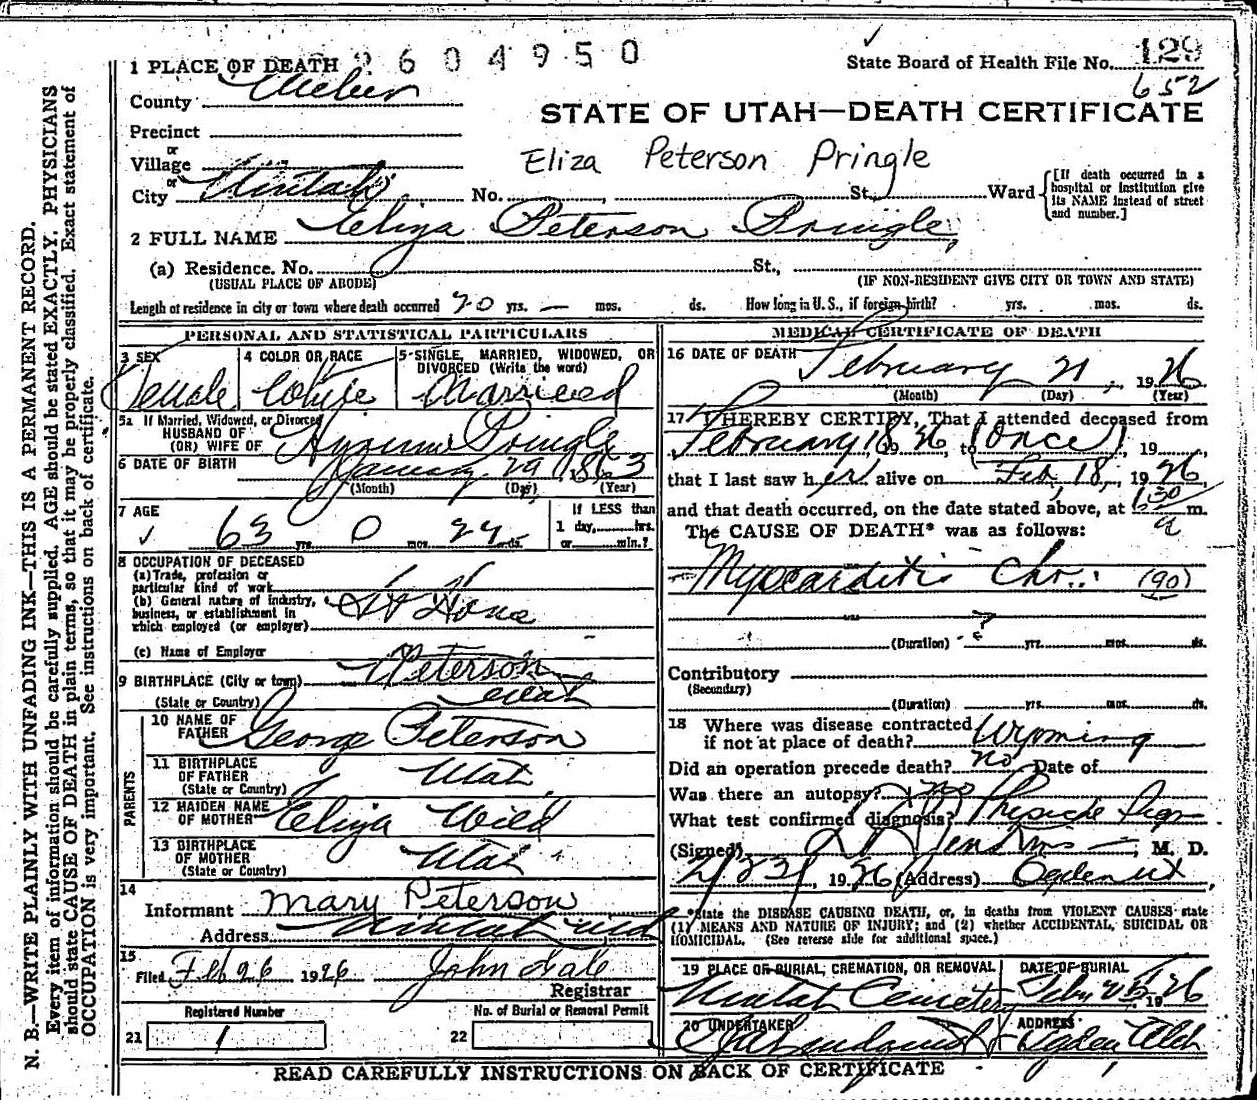 1 PLACE OF DEATH 2604950
State Board of Health File No. 129
652
County Weber
STATE OF UTAH—DEATH CERTIFICATE
Precinct
or
Village
Eliza Peterson Pringle
or
City Uintah No. , St., Ward
[If death occurred in a hospital or institution give its NAME instead of street and number.]
2 FULL NAME Eliza Peterson Pringle,
(a) Residence. No. St.,
(USUAL PLACE OF ABODE) (IF NON-RESIDENT GIVE CITY OR TOWN AND STATE)
Length of residence in city or town where death occurred 20 yrs. — mos. ds. How long in U. S., if foreign birth? yrs. mos. ds.
PERSONAL AND STATISTICAL PARTICULARS
3 SEX Female
4 COLOR OR RACE White
5 SINGLE, MARRIED, WIDOWED, OR DIVORCED (Write the word) Married
5a If Married, Widowed, or Divorced
HUSBAND OF
(OR) WIFE OF Hyrum Pringle
6 DATE OF BIRTH January 29, 1863
(Month) (Day) (Year)
7 AGE
63 yrs. 0 mos. ds.
If LESS than
1 day, hrs.
or min.?
8 OCCUPATION OF DECEASED
(a) Trade, profession or
particular kind of work
(b) General nature of industry,
business, or establishment in
which employed (or employer) At Home
(c) Name of Employer
9 BIRTHPLACE (City or town) Peterson
(State or Country) Utah
PARENTS
10 NAME OF
FATHER George Peterson
11 BIRTHPLACE
OF FATHER Utah
(State or Country)
12 MAIDEN NAME
OF MOTHER Eliza Wild
13 BIRTHPLACE
OF MOTHER Utah
(State or Country)
14
Informant Mary Peterson
Address Uintah Utah
15
Filed Feb 26 1926 John Dale
Registrar
Registered Number
21 1
No. of Burial or Removal Permit
22
MEDICAL CERTIFICATE OF DEATH
16 DATE OF DEATH February 21, 1926
(Month) (Day) (Year)
17 I HEREBY CERTIFY, That I attended deceased from
February 18, 1926, to (Once), 19 ,
that I last saw her alive on Feb, 18, 1926
and that death occurred, on the date stated above, at m.
The CAUSE OF DEATH* was as follows:
Myocarditis Chr.: (90)
?
(Duration) yrs. mos. ds.
Contributory
(Secondary)
(Duration) yrs. mos. ds.
18 Where was disease contracted
if not at place of death? Wyoming
Did an operation precede death? no Date of
Was there an autopsy? no
What test confirmed diagnosis? Physicle Sign
(Signed) Jenkins, M. D.
2/23/, 1926 (Address) Ogden Ut,
*State the DISEASE CAUSING DEATH, or, in deaths from VIOLENT CAUSES state
(1) MEANS AND NATURE OF INJURY; and (2) whether ACCIDENTAL, SUICIDAL OR
HOMICIDAL. (See reverse side for additional space.)
19 PLACE OF BURIAL, CREMATION, OR REMOVAL Uintah Cemetery
DATE OF BURIAL Feby 25 1926
20 UNDERTAKER
ADDRESS Ogden, Utah
READ CAREFULLY INSTRUCTIONS ON BACK OF CERTIFICATE
N. B.—WRITE PLAINLY WITH UNFADING INK—THIS IS A PERMANENT RECORD.
Every item of information should be carefully supplied. AGE should be stated EXACTLY. PHYSICIANS
should state CAUSE OF DEATH in plain terms, so that it may be properly classified. Exact statement of
OCCUPATION is very important. See instructions on back of certificate.